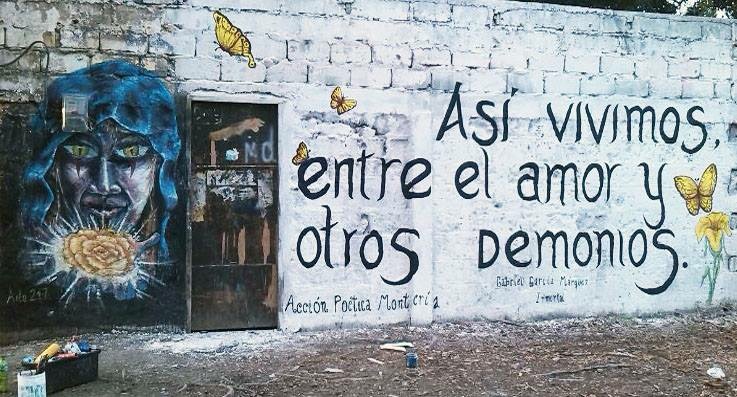 Así vivimos,
entre el amor y
otros DEMONIOS.
Gabriel García Márquez
Inmortal
Acción Poética Montería